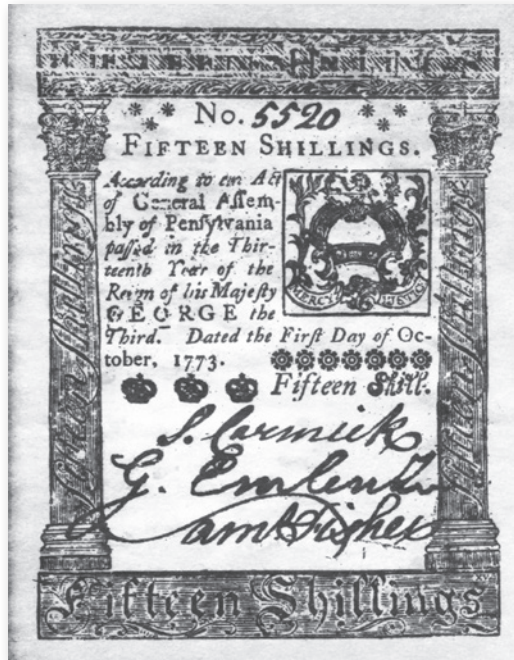 No. 5520
FIFTEEN SHILLINGS.
According to an Act
of General Aſſem-
bly of Penſylvania
paſſed in the Thir-
teenth Year of the
Reign of his Majeſty
GEORGE the
Third. Dated the Firſt Day of Oc-
tober, 1773.
Fifteen Shill.
MERCY JUSTICE
S. Carmick
G. Emlen
Fisher
Fifteen Shillings
Fifteen Shillings
Fifteen Shillings